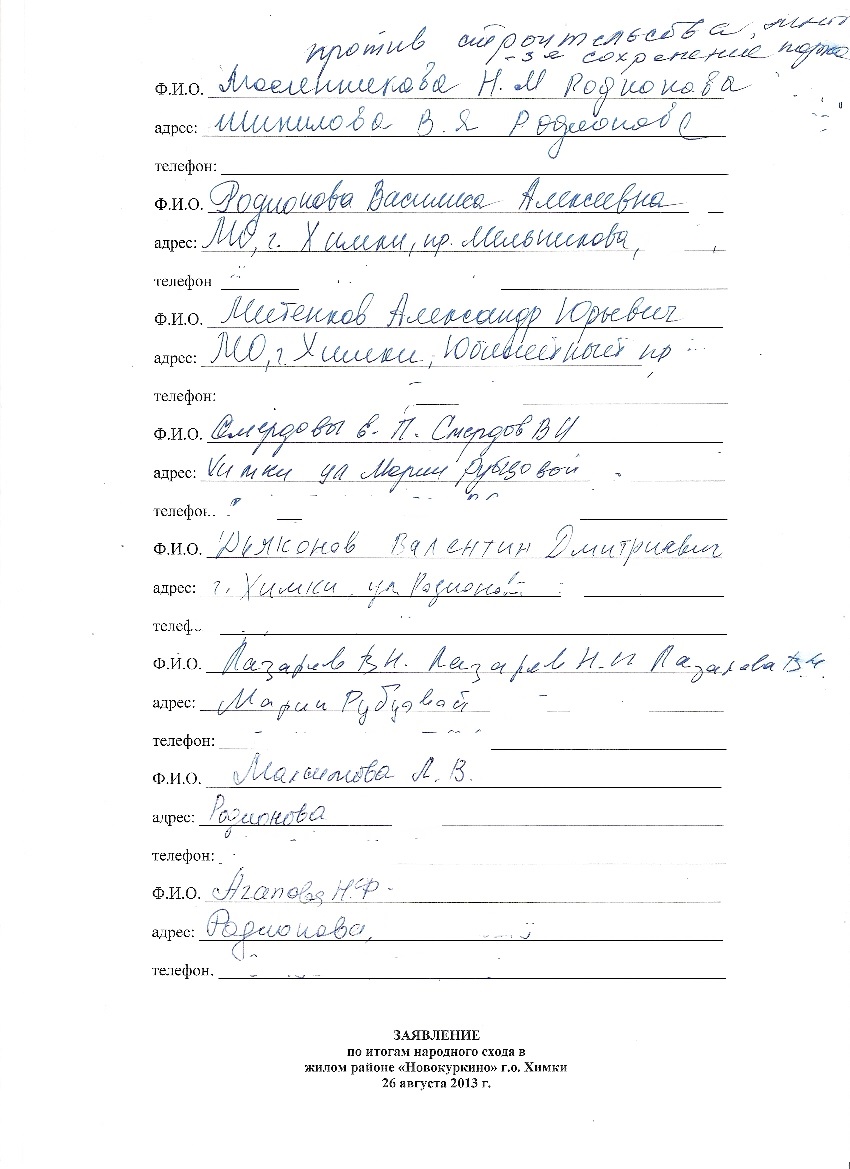 против строительства,
-за сохранение парка
Ф.И.О. Масленникова Н.М Родионова
адрес: Шипилова В.Я Родионова
телефон:
Ф.И.О. Родионова Василиса Алексеевна
адрес: МО, г. Химки, пр. Мельникова,
телефон
Ф.И.О. Митенков Александр Юрьевич
адрес: МО, г. Химки, Юбилейный пр
телефон:
Ф.И.О. Смердовы В. П. Смердов В И
адрес: Химки ул Марии Рубцовой
телефон.
Ф.И.О. Дьяконов Валентин Дмитриевич
адрес: г. Химки ул Родионова
телеф..
Ф.И.О. Лазарев В Н. Лазарев Н.И Лазарева В.Н.
адрес: Марии Рубцовой
телефон:
Ф.И.О. Максимова Л. В.
адрес: Родионова
телефон:
Ф.И.О. Агапова Н.Ф
адрес: Родионова,
телефон.
ЗАЯВЛЕНИЕ
по итогам народного схода в
жилом районе «Новокуркино» г.о. Химки
26 августа 2013 г.